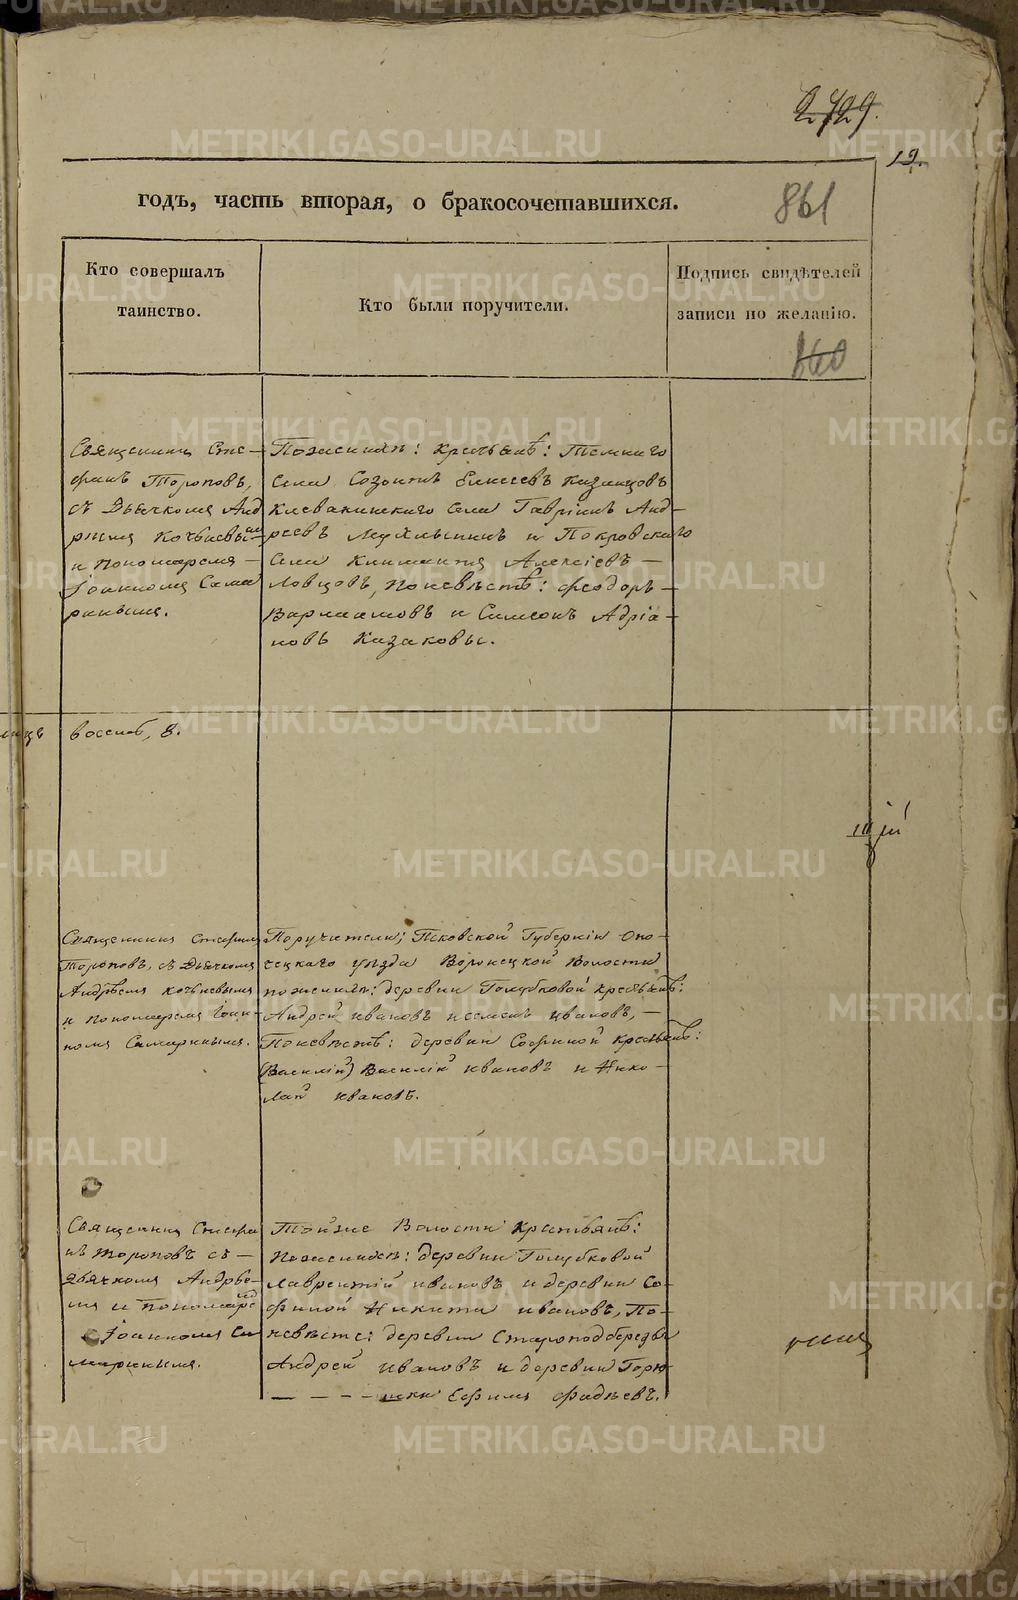 2729.
19.
годъ, часть вторая, о бракосочетавшихся.
861
Кто совершалъ
таинство.
Кто были поручители.
Подпись свидѣтелей
записи по желанію.
860
Священникъ Сте-
фанъ Тороповъ,
съ Дьячкомъ Анд
реемъ Кочневымъ
и Пономаремъ
Іоанномъ Сама
ринымъ.
Поженихѣ: крестьянѣ: Темнаго
села Созонтъ Елисеевъ Казанцовъ
Клевакинскаго села Гавріилъ Анд-
реевъ и Покровскаго
села Климентъ Алексіевъ
Ловцовъ, поневѣстѣ: Феодоръ
Варлаамовъ и Симеонъ Адріа-
новъ Казаковы.
8.
Священникъ Стефанъ
Тороповъ, съ Дьячкомъ
Андрѣемъ Кочневымъ
и Пономаремъ Іоан-
номъ Самаринымъ.
Поручители; Псковской Губерніи Опо-
чецкаго уѣзда Воронецкой Волости
поженихѣ: деревни Голубковой крестьянѣ:
Андрей Ивановъ и Семенъ Ивановъ, —
Поневѣстѣ: деревни Софиной крестьянѣ:
(Василій) Василій Ивановъ и Нико-
лай Ивановъ.
Священникъ Стефа
нъ Тороповъ съ
дьячкомъ Андрѣе-
мъ и Пономаремъ
Іоанномъ Са
маринымъ.
Тойже Волости Крестьянѣ:
Поженихѣ: деревни Голубковой
Лаврентій Ивановъ и деревни Со-
финой Никита Ивановъ, По-
невѣстѣ: деревни
Андрей Ивановъ и деревни Горю
— — — — шки Ефимъ Фадѣевъ.
METRIKI.GASO-URAL.RU